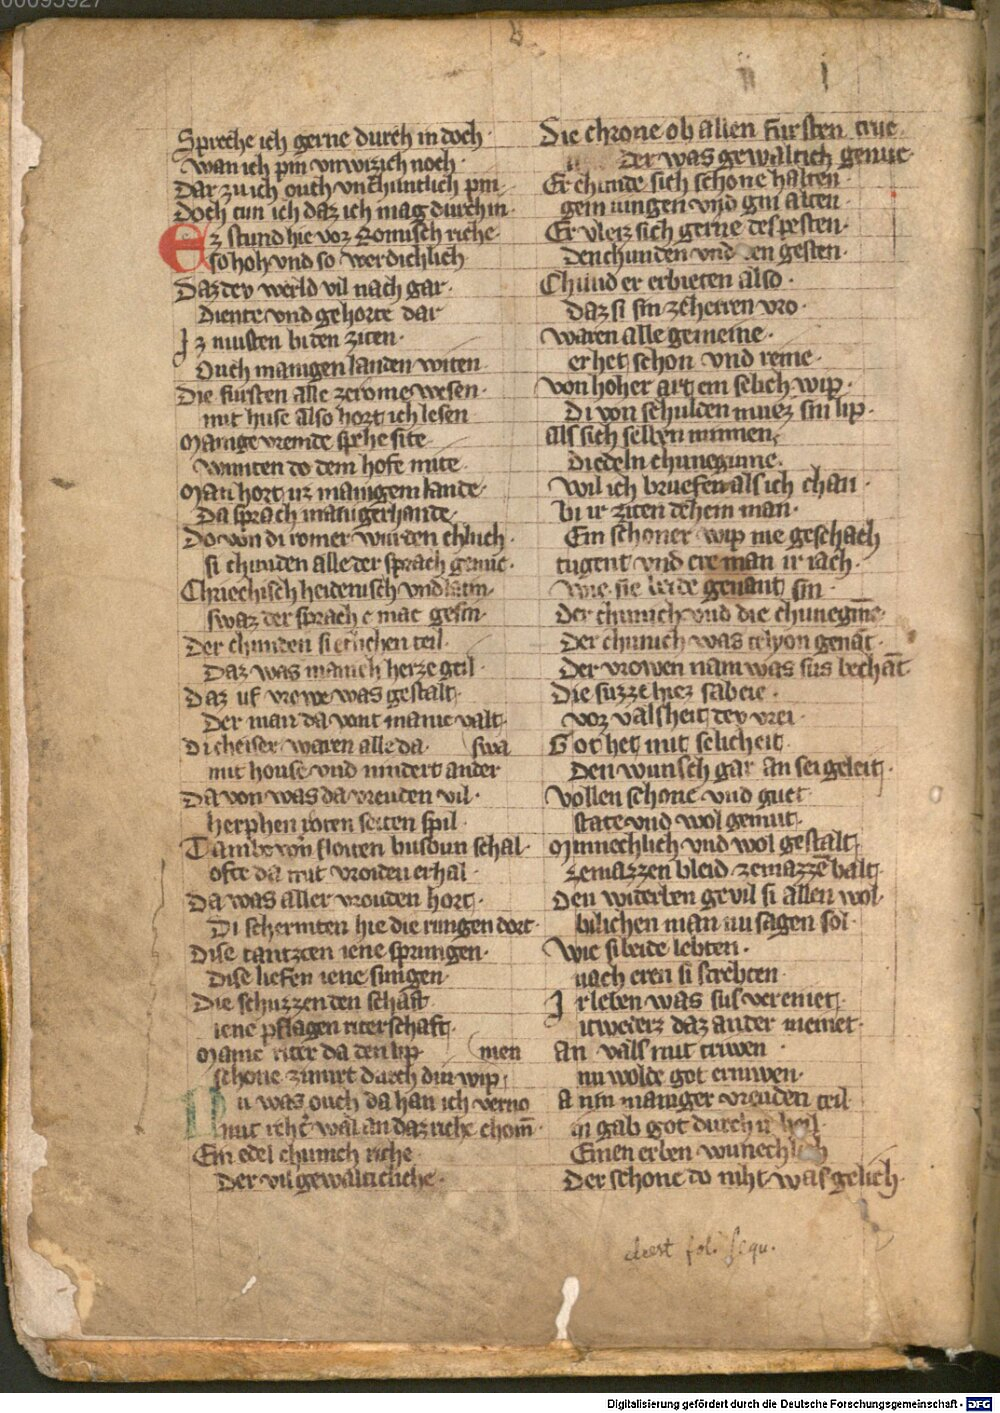 Spreche ich gerne durch in doch
wan ich pin vnwizich noch
Dar zu ich ouch vnchuntlich pin
Doch tun ich daz ich mag durch in
Ez stund hie vor Romisch riche
so hoh vnd so werdichlich
Daz dev werld vil nach gar
diente vnd gehorte dar
Iz musten bi den ziten
Ouch manigen landen witen
Die fursten alle ze rome wesen
mit huse also hort ich lesen
Manige vremde sprche site
wunten do dem hofe mite
Man hort uz manigem lande
Da sprach manigerhande
Do von di romer wurden chluch
si chunden alle der sprach genuc
Chriechisch heidenisch vnd latin
swaz der sprach e mac gesin
Der chunden si etlichen teil
Daz was manich herze geil
Daz uf vrewe was gestalt
Der man da vont manic valt
Di cheiser waren alle da swa
mit house vnd nindert ander
Da von was da vreuden vil
herphen roten seiten spil
Tambvrvon floiten busoun schal
ofte da mit vroiden erhal
Da was aller vrouden hort
Di schermten hie die rungen dort
Dise tantzten iene sprungen
Dise liefen iene singen
Die schuzzen den schaft
iene pflagen riterschaft
Manic riter da den lip men
schone zimirt durch diu wip
Nu was ouch da han ich verno
mit reht wal an daz riche chom̄
Ein edel chunich riche
Der vil gewalticliche
Die chrone ob allen fursten truc
der was gewaltich genuc
Er chunde sich schone halten
gein iungen vnd gin alten
Er vleiz sich gerne des pesten
Den chunden vnd den gesten
Chund er erbieten also
daz si sin ze herren vro
waren alle gemeine
er het schon vnd reine
von hoher art ein selich wip
Di von schulden muez sin lip
als sich selben minnen
Di edeln chuneginne
wil ich bruefen als ich chan
bi ir ziten dehein man
Ein schoner wip nie geschach
tugent vnd ere man ir iach
wie sie beide genant sin
Der chunich vnd die chunegine
Der chunich was telyon genāt
Der vrowen nam was sus bechāt
Die suzze hiez sabeie
vor valsheit dev vrei
Got het mit selicheit
Den wunsch gar an sei geleit
vollen schone vnd guet
state vnd wol gemut
Minnechlich vnd wol gestalt
ze mazzen bleid ze mazzē balt
Den widerben gevil si allen wol
bilichen man nu sagen sol
wie si beide lebten
nach eren si strebten
Ir leben was sus vereinet
itwederz daz ander meinet
an vals mit triwen
nu wolde got erniwen
An in maniger vreuden teil
in gab got durch ir heil
Einen erben wunechlich
Der schone do niht was gelich
deest fol. sequ.
Digitalisierung gefördert durch die Deutsche Forschungsgemeinschaft - DFG